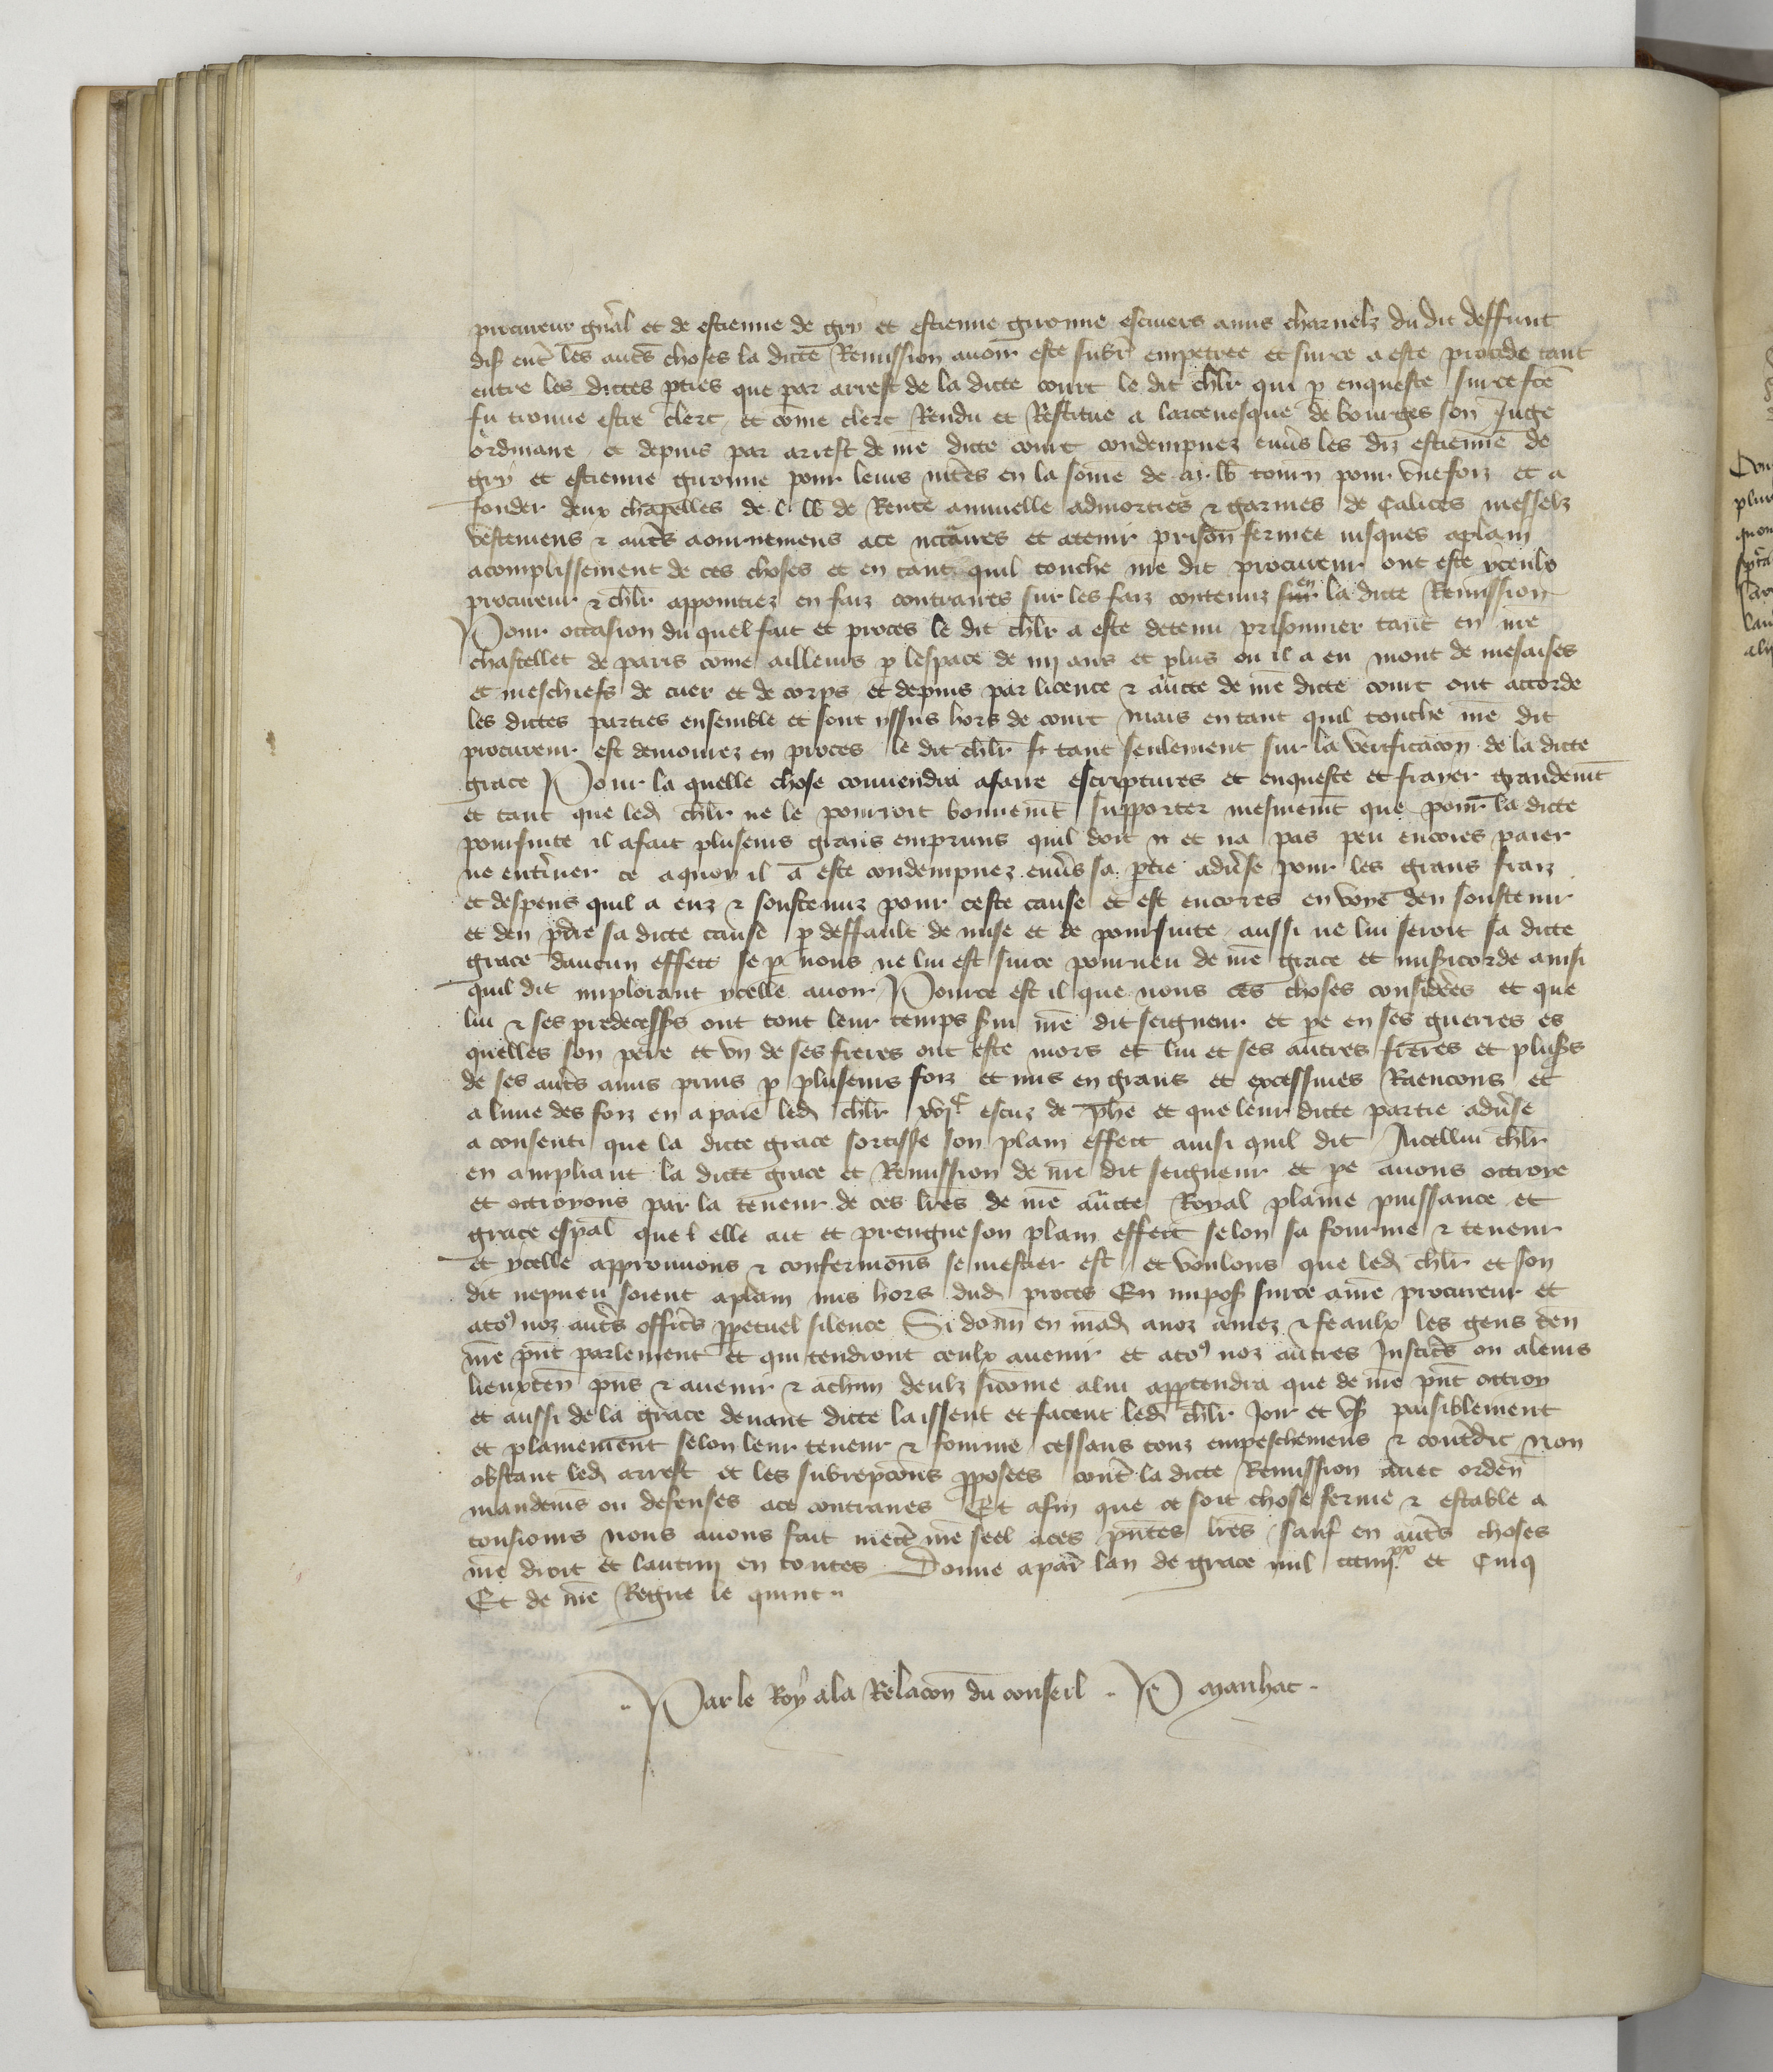 procureur gñal et de estienne de gry et estienne guenne escuiers amis charnelz du dit deffunt
dis entͥ les autͥs choses la dicte Remission avoir este subrͥ empetree et surce a este procede tant
entre les dictes pties que par arrest de la dicte court le dit chlr qui p enqueste surce fce
fu trouve estre clerc et come clerc Rendu et Restitue a larcevesque de bourges son Juge
ordinaire et depuis par arrest de nre dicte court condempnez envs les diz estienne de
gry et estienne guenne pour leurs intes en la some de lb tourn pour une foiz et a
fonder deux chapelles de l lb de Rente annuelle admorties & garnies de Calices messelz
vestemens & auts aournemens ace nccaires et atenir prison fermee jusques aplain
acomplissement de ces choses et en tant quil touche nre dit procureur ont este yceulx
procureur & chlr appointiez en faiz contraires sur les faiz contenuz en la dicte Remission
Pour occasion du quel fait et proces le dit chlr a este detenu prisonnier tant en nre
chastellet de paris come ailleurs p lespace de iiij ans et plus ou il a eu mont de mesaises
et meschiefs de cuer et de corps et depuis par licence & aucte de nre dicte court ont accorde
les dictes parties ensemble et sont yssus hors de court mais entant quil touche nre dit
procureur est demourez en proces le dit chlr tant seulement sur la verificacon de la dicte
grace Pour la quelle chose convendra afaire escriptures et enqueste et fraier grandemt
et tant que led chlr ne le pourroit bonnemt supporter mesmemt que pour la dicte
poursuite il afait pluseurs grans empruns quil doit et na pas peu encores paier
ne entͥiner ce aquoy il a este condempnez envs sa ptie advse pour les grans fraiz
et despens quil a euz & soustenuz pour ceste cause et est encores en voye den soustenir
et den pdre sa dicte cause p deffault de mise et de poursuite aussi ne lui seroit sa dicte
grace daucun effect se p nous ne lui est surce pourveu de nre grace et misicorde ainsi
quil dit implorant ycelle avoir Pource est il que nous ces choses considͥees et que
lui & ses predecesss ont tout leur temps svi nre dit seigneur et pe en ses guerres es
quelles son pere et un de ses freres ont este mors et lui et ses autres freres et plusͥs
de ses auts amis prins p pluseurs foiz et mis en grans et excessives Raencons et
a lune des foiz en a paie led chlr xvjᶜ escuz de phe et que leur dicte partie advse
a consenti que la dicte grace sortisse son plain effect ainsi quil dit Aicellui chlr
en ampliant la dicte grace et Remission de nre dit seigneur et pe avons ottroye
et ottroyons par la teneur de ces lres de nre aucte Royal plaine puissance et
grace espal que elle ait et prengne son plain effect selon sa fourme & teneur
et ycelle approuvons & confermons se mestier est et voulons que led chlr et son
dit nepveu soient aplain mis hors dud proces En impos surce anre procureur et
atoꝰ noz auts officͥs ppetuel silence Si donn en mad anoz amez & feaulx les gens ten
nre pnt parlement et qui tendront ceulx avenir et atoꝰ noz autres Justicͥs ou aleurs
lieuxten pns & avenir & achun deulz sicome alui apptendra que de nre pnt ottroy
et aussi de la grace devant dicte laissent et facent led chlr Joir et us paisiblement
et plainement selon leur teneur & fourme cessans touz empeschemens & contdit Non
obstant led arrest et les subrepcons pposees contͥ la dicte Remission avec orden
mandems ou defenses ace contraires Et afin que ce soit chose ferme & estable a
tousiours nous avons fait mectͥ nre seel aces pntes lres sauf en auts choses
nre droit et lautruy en toutes Donne apar lan de grace mil ccciiijˣˣ et Cinq
Et de nre Regne le quint
Par le Roy ala Relacon du conseil P Manhac